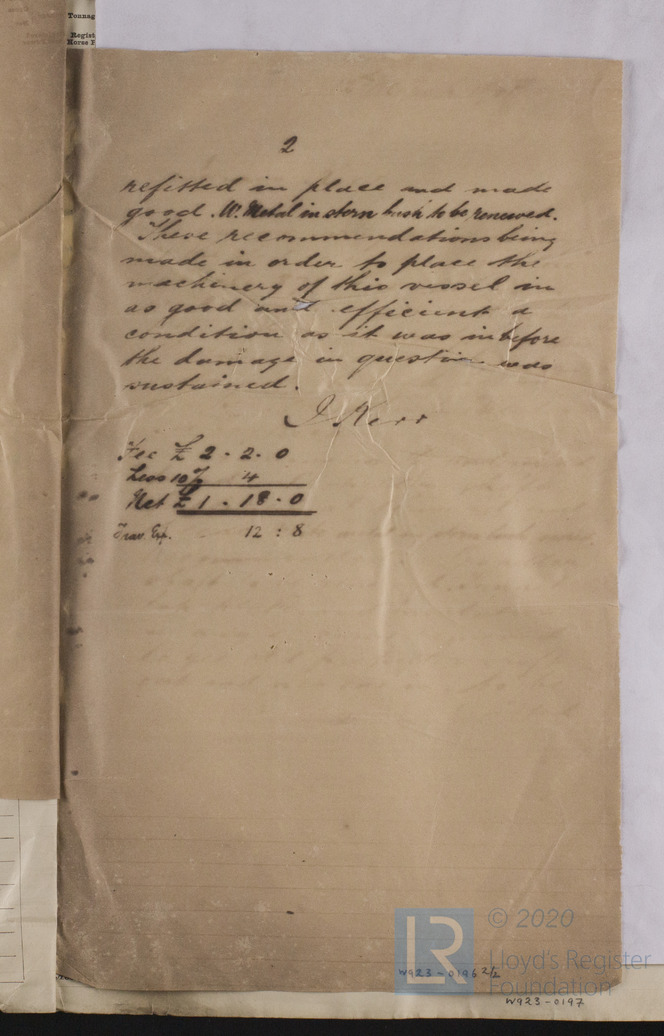 Tonnag
Regist
Horse P
2
refitted in place and made
good. W. Metal in stern bush to be renewed.
These recommendations being
made in order to place the
machinery of this vessel in
as good and efficient a
condition as it was in before
the damage in question was
sustained.
J Kerr
Fee £ 2 . 2 . 0
Less 10% 4
Net £ 1 . 18 . 0
Trav. Exp. 12 : 8
© 2020
LR Lloyd's Register
Foundation
W923-0196 2/2
W923-0197